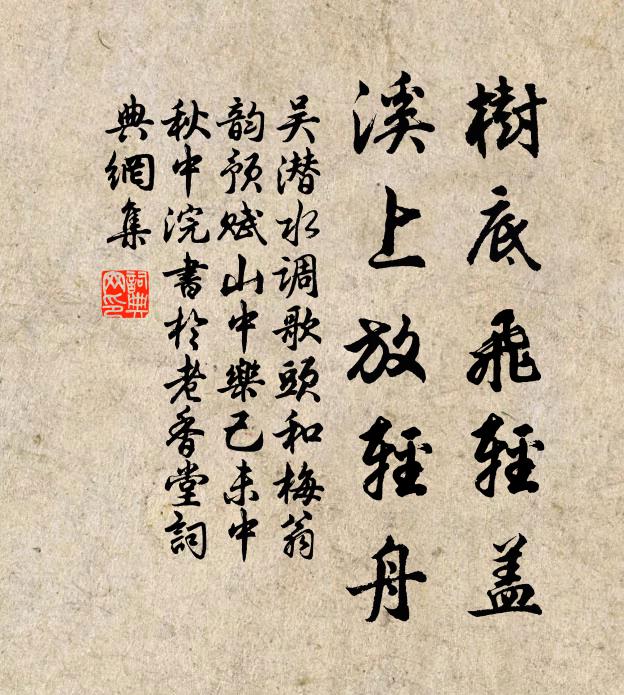 樹底飛輕蓋
溪上放輕舟
吴潜水調歌頭和梅翁
韵预赋山中樂己未中
秋中浣書於老香堂詞
典網集
詞典
网印